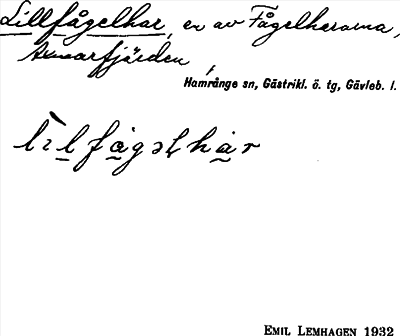 Lillfågelhar, en av Fågelhararna,
Axmarfjärden,
Hamrånge sn, Gästrikl. ö. tg, Gävleb. l.
lilfågəlhar
EMIL LEMHAGEN 1932